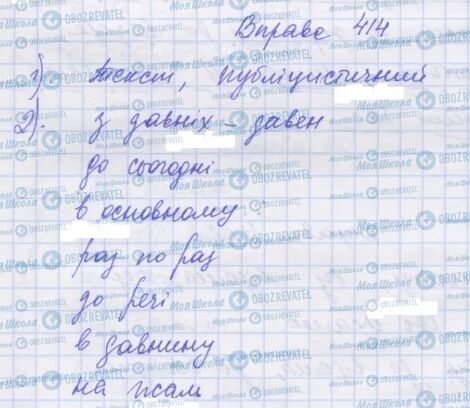 Вправа 414
1). Текст, публіцистичний
2). з давніх-давен
до сьогодні
в основному
раз по раз
до речі
в давнину
на жаль